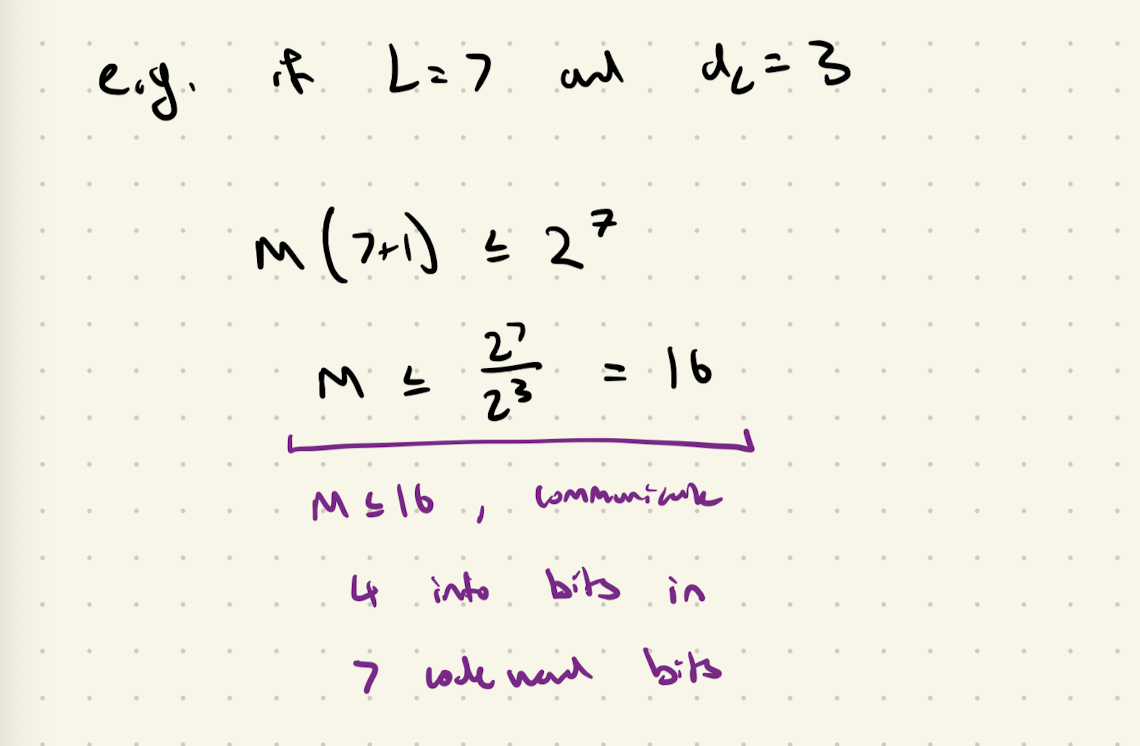 e.g. if L=7 and d_L=3
M(7+1) ≤ 2^7
M ≤ 2^7/2^3 = 16
M ≤ 16, communicate
4 info bits in
7 codeword bits